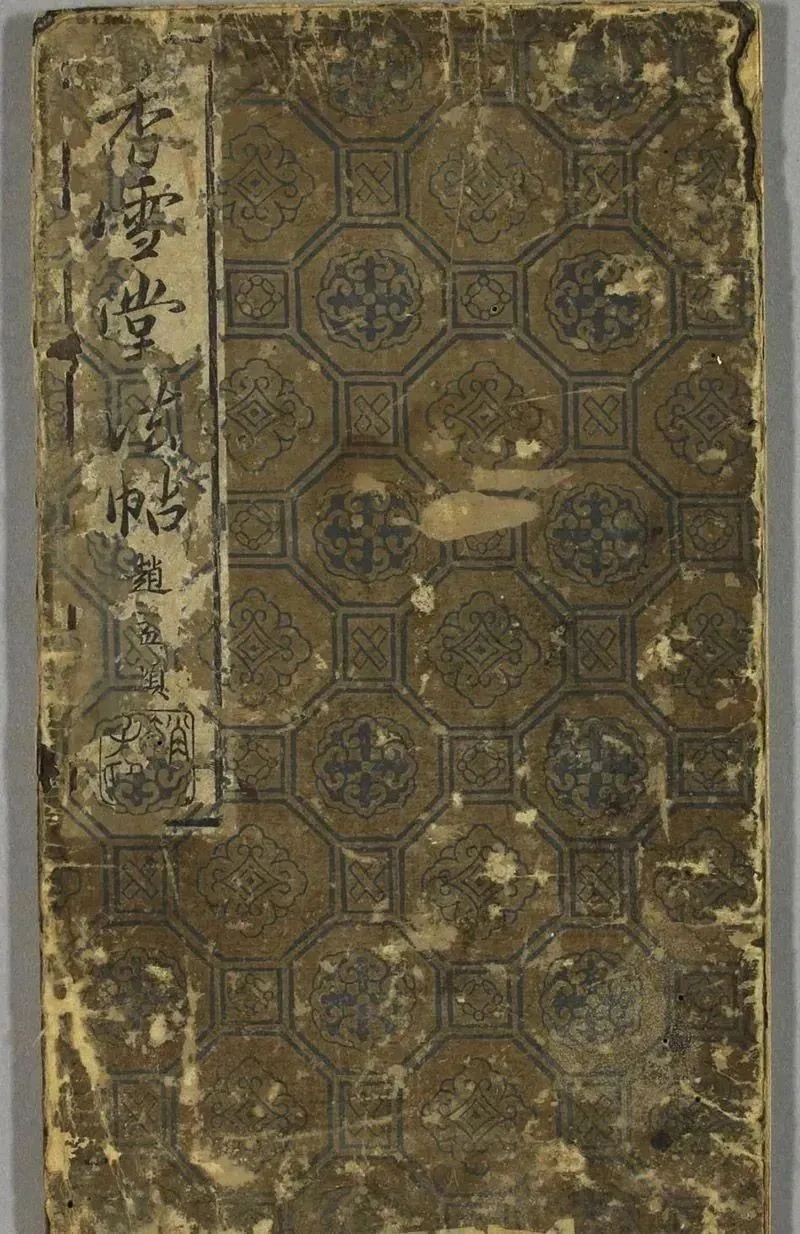 香雪堂法帖 趙孟頫